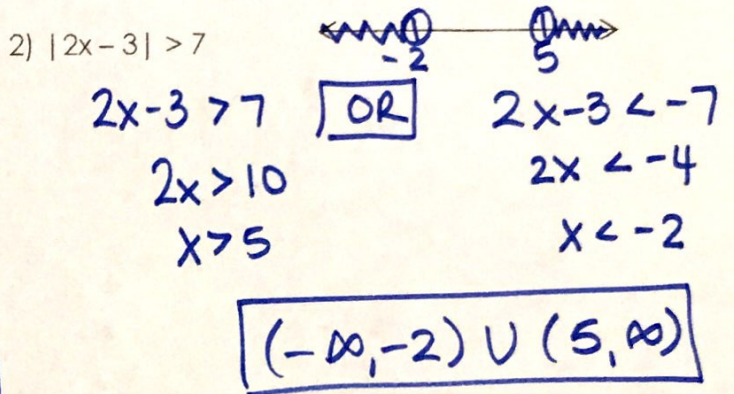 2) |2x – 3| > 7
-2 5
2x-3 > 7 OR 2x-3 < -7
2x > 10 2x < -4
x > 5 x < -2
(-∞,-2) ∪ (5,∞)